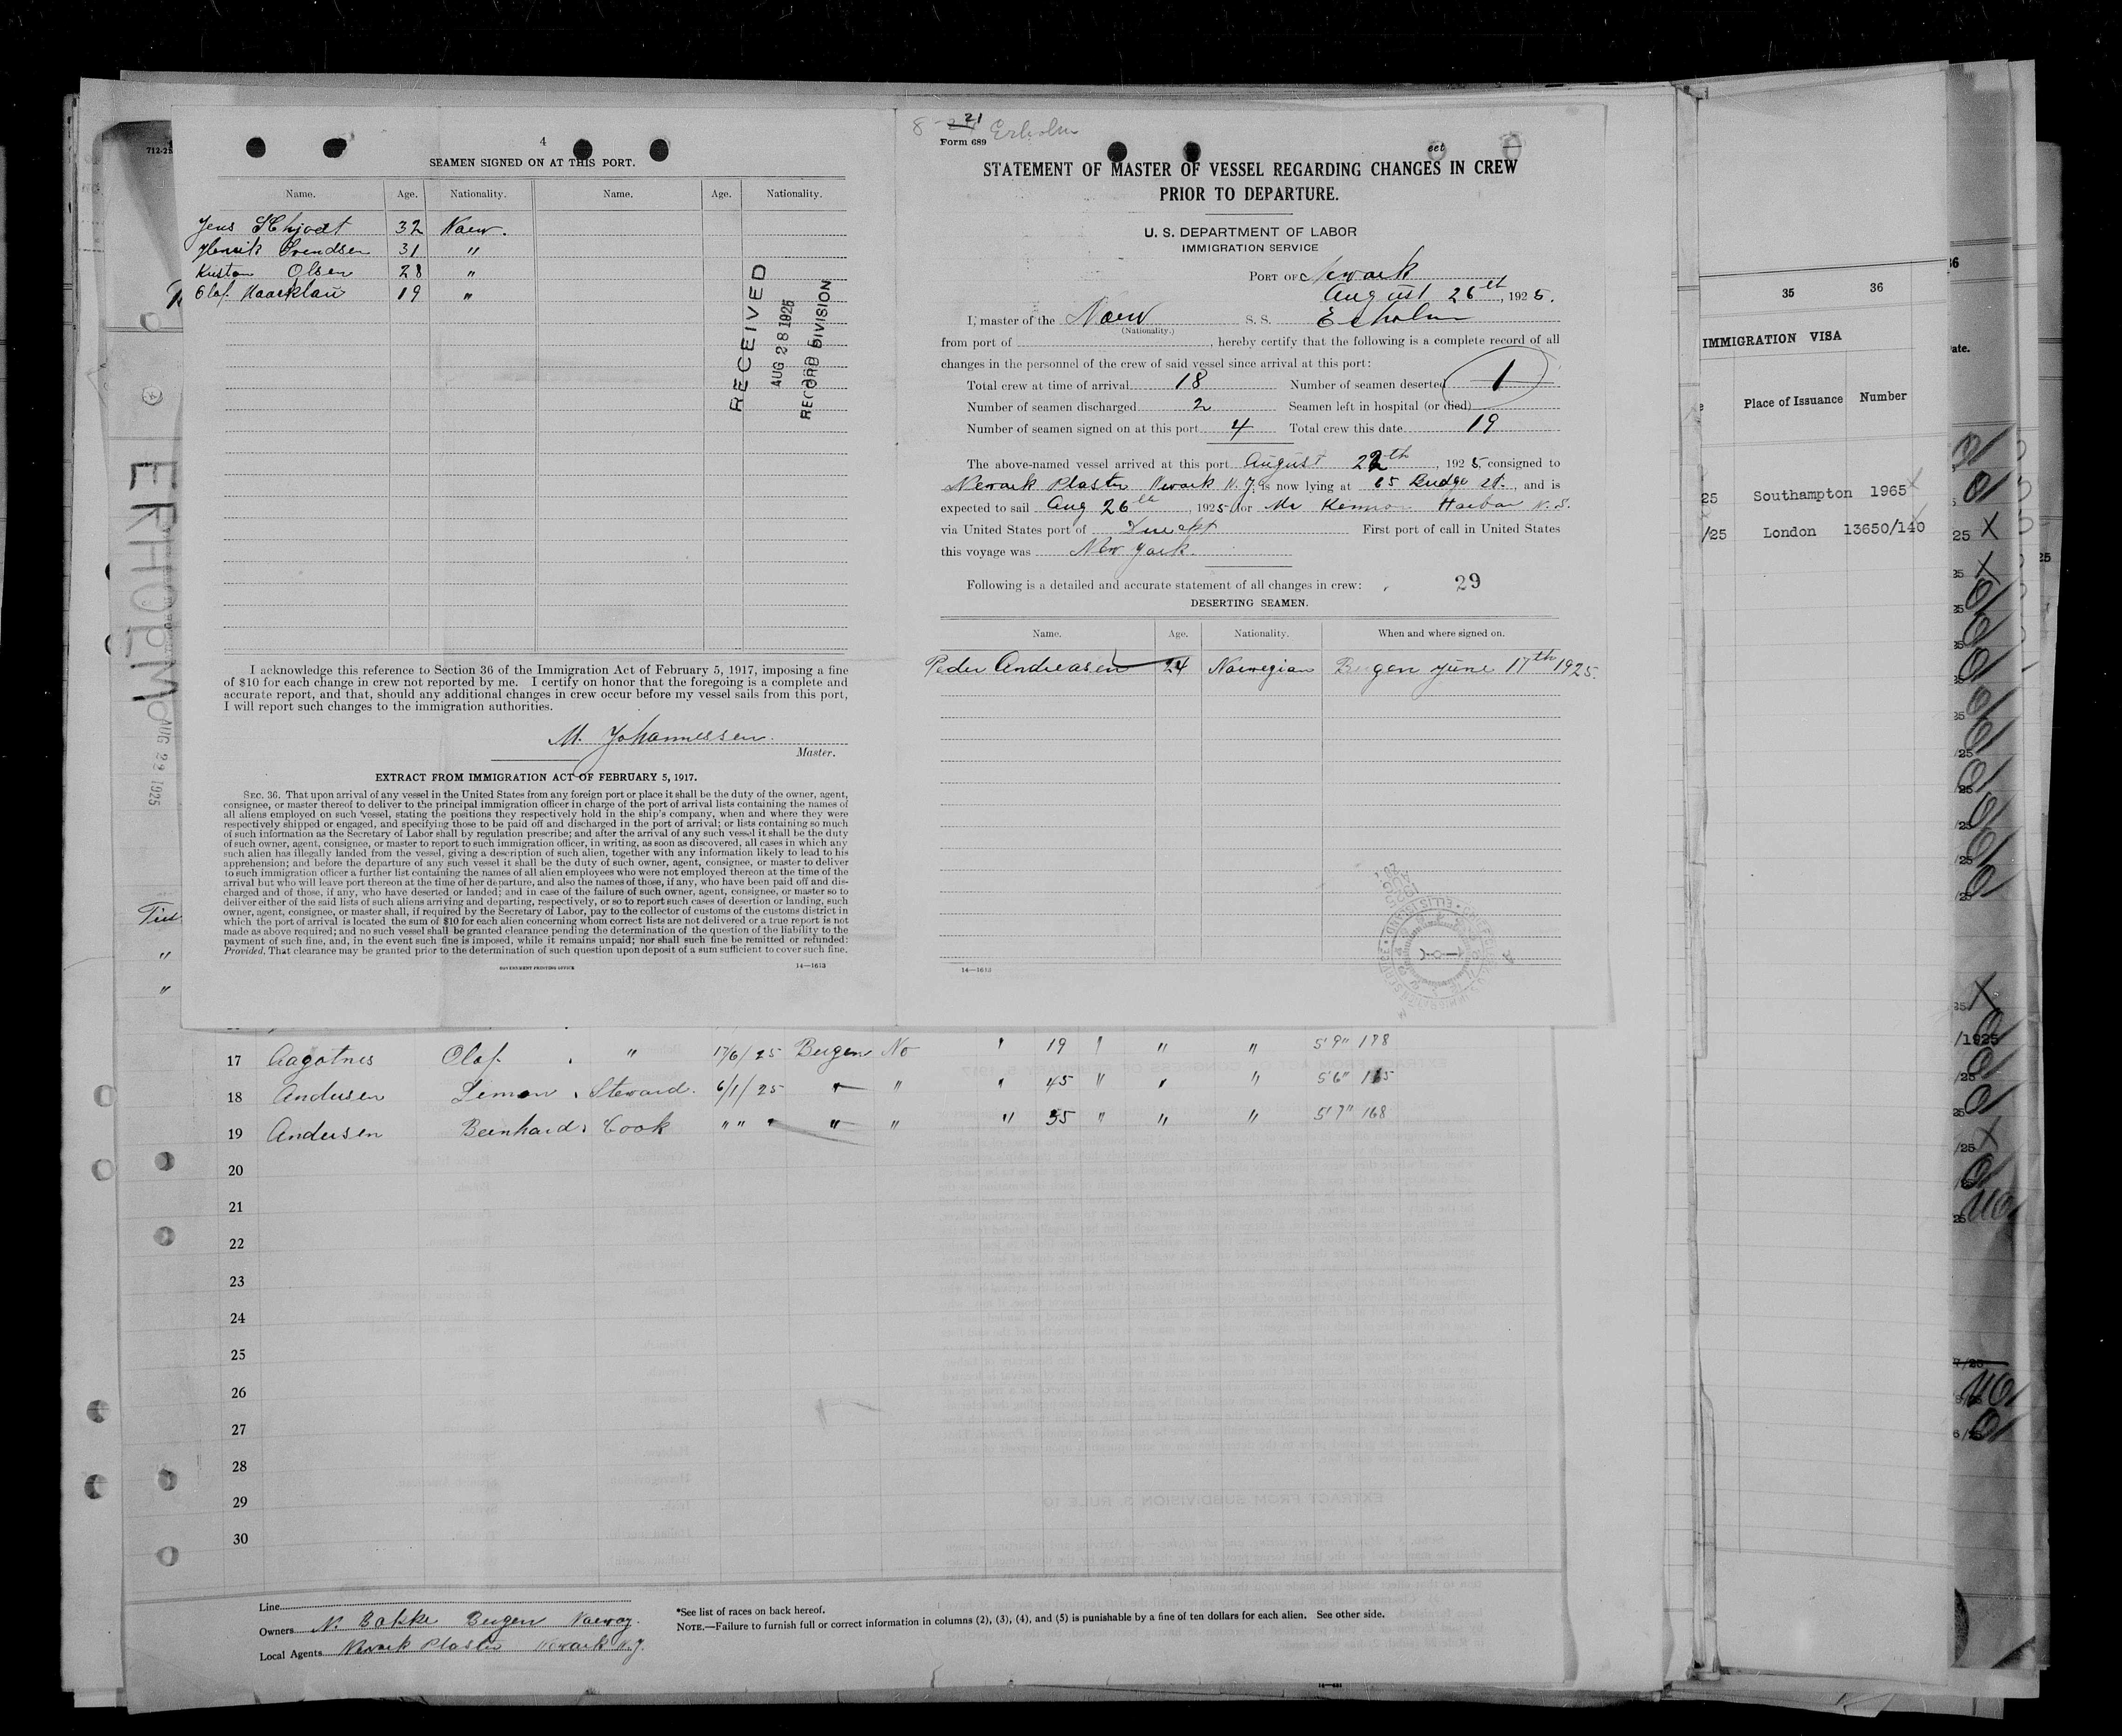 4
SEAMEN SIGNED ON AT THIS PORT.
Name. Age. Nationality. Name. Age. Nationality.
Jens 32 Norw.
Henrik Svendsen 31 "
Olsen 28 "
Olaf 19 "
RECEIVED
AUG 28 1925
RECORD DIVISION
I acknowledge this reference to Section 36 of the Immigration Act of February 5, 1917, imposing a fine
of $10 for each change in crew not reported by me. I certify on honor that the foregoing is a complete and
accurate report, and that, should any additional changes in crew occur before my vessel sails from this port,
I will report such changes to the immigration authorities.
M. Johannessen.
Master.
EXTRACT FROM IMMIGRATION ACT OF FEBRUARY 5, 1917.
SEC. 36. That upon arrival of any vessel in the United States from any foreign port or place it shall be the duty of the owner, agent,
consignee, or master thereof to deliver to the principal immigration officer in charge of the port of arrival lists containing the names of
all aliens employed on such vessel, stating the positions they respectively hold in the ship's company, when and where they were
respectively shipped or engaged, and specifying those to be paid off and discharged in the port of arrival; or lists containing so much
of such information as the Secretary of Labor shall by regulation prescribe; and after the arrival of any such vessel it shall be the duty
of such owner, agent, consignee, or master to report to such immigration officer, in writing, as soon as discovered, all cases in which any
such alien has illegally landed from the vessel, giving a description of such alien, together with any information likely to lead to his
apprehension; and before the departure of any such vessel it shall be the duty of such owner, agent, consignee, or master to deliver
to such immigration officer a further list containing the names of all alien employees who were not employed thereon at the time of the
arrival but who will leave port thereon at the time of her departure, and also the names of those, if any, who have been paid off and dis-
charged and of those, if any, who have deserted or landed; and in case of the failure of such owner, agent, consignee, or master so to
deliver either of the said lists of such aliens arriving and departing, respectively, or so to report such cases of desertion or landing, such
owner, agent, consignee, or master shall, if required by the Secretary of Labor, pay to the collector of customs of the customs district in
which the port of arrival is located the sum of $10 for each alien concerning whom correct lists are not delivered or a true report is not
made as above required; and no such vessel shall be granted clearance pending the determination of the question of the liability to the
payment of such fine, and, in the event such fine is imposed, while it remains unpaid; nor shall such fine be remitted or refunded:
Provided, That clearance may be granted prior to the determination of such question upon deposit of a sum sufficient to cover such fine.
GOVERNMENT PRINTING OFFICE 14—1613
21
Erholm
Form 689
STATEMENT OF MASTER OF VESSEL REGARDING CHANGES IN CREW
PRIOR TO DEPARTURE.
U. S. DEPARTMENT OF LABOR
IMMIGRATION SERVICE
PORT OF Newark
August 26th, 1925.
I, master of the Norw S. S. Erholm
(Nationality.)
from port of , hereby certify that the following is a complete record of all
changes in the personnel of the crew of said vessel since arrival at this port:
Total crew at time of arrival 18 Number of seamen deserted 1
Number of seamen discharged 2 Seamen left in hospital (or died)
Number of seamen signed on at this port 4 Total crew this date 19
The above-named vessel arrived at this port August 22th, 1925, consigned to
Newark Plaster Newark N.J, is now lying at 65 , and is
expected to sail Aug 26th, 1925 for Harbor N.S.
via United States port of Direct First port of call in United States
this voyage was New York.
Following is a detailed and accurate statement of all changes in crew:
29
DESERTING SEAMEN.
Name. Age. Nationality. When and where signed on.
Peder Andreasen 24 Norwegian Bergen June 17th 1925.
14—1613
ERHOLM
AUG 22 1925
17 Aagotnes Olaf " 17/6/25 Bergen No " 19 " " " 5'9" 178
18 Andersen Steward. 6/1/25 " " " 45 " " " 5'6"
19 Andersen Bernhard Cook " " " " " " 35 " " " 5'7" 168
20
21
22
23
24
25
26
27
28
29
30
Line
Owners N. Bakke Bergen Norway.
Local Agents Newark Plaster Newark N.J.
*See list of races on back hereof.
NOTE.—Failure to furnish full or correct information in columns (2), (3), (4), and (5) is punishable by a fine of ten dollars for each alien. See other side.
35 36
IMMIGRATION VISA
Place of Issuance Number
25 Southampton 1965
/25 London 13650/140